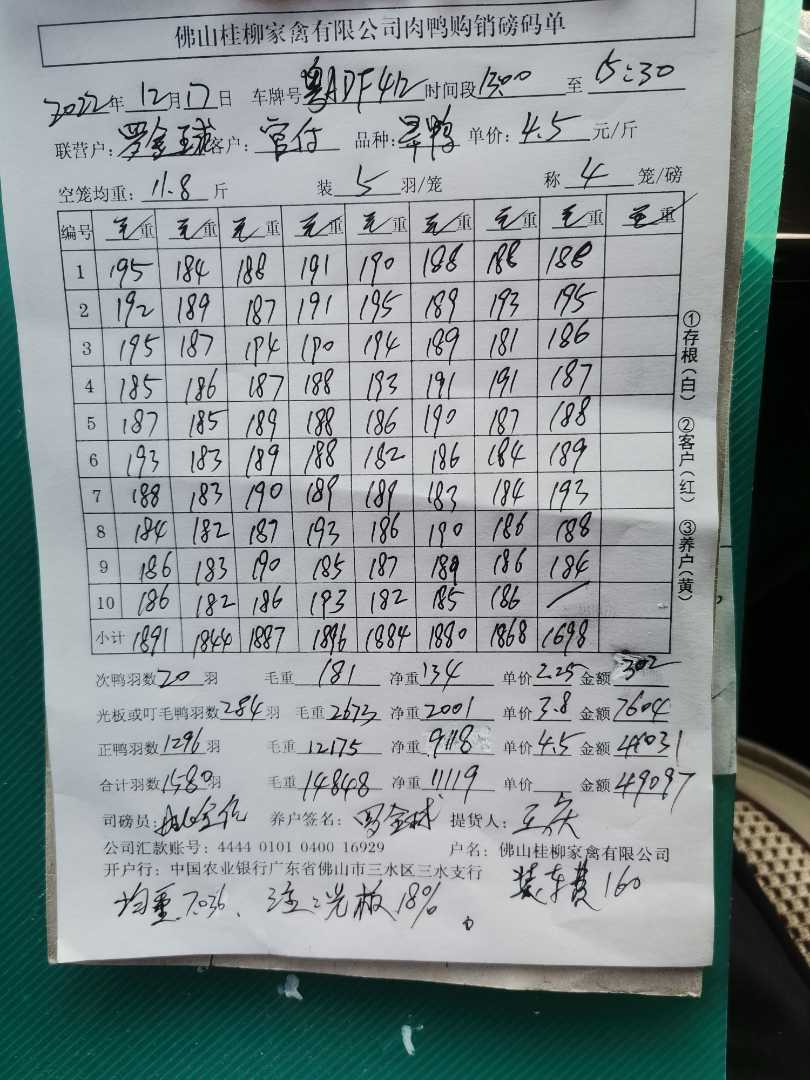 佛山桂柳家禽有限公司肉鸭购销磅码单
2022年12月17日 车牌号粤ADF412时间段13:00至15:30
联营户:罗金球客户:官付 品种:旱鸭 单价:4.5元/斤
空笼均重:11.8斤 装5羽/笼 称4笼/磅
编号 毛重 毛重 毛重 毛重 毛重 毛重 毛重 毛重 毛重
1 195 184 188 191 190 188 188 188
2 192 189 187 191 195 189 193 195
3 195 187 194 190 194 189 181 186
4 185 186 187 188 193 191 191 187
5 187 185 189 188 186 190 187 188
6 193 183 189 188 182 186 184 189
7 188 183 190 189 189 183 184 193
8 184 182 187 193 186 190 186 188
9 186 183 190 185 187 189 186 184
10 186 182 186 193 182 185 186 /
小计 1891 1844 1887 1896 1884 1880 1868 1698
次鸭羽数20羽 毛重181 净重134 单价2.25金额302
光板或叮毛鸭羽数284羽 毛重2673净重2001 单价3.8金额7604
正鸭羽数1296羽 毛重12175净重9118 单价4.5金额41031
合计羽数1580羽 毛重14848净重11119 单价 金额49097
司磅员: 养户签名:罗金球 提货人:王庆
公司汇款账号:4444 0101 0400 16929 户名:佛山桂柳家禽有限公司
开户行:中国农业银行广东省佛山市三水区三水支行
均重7.036、注:光板18% 装车费160
①存根(白) ②客户(红) ③养户(黄)